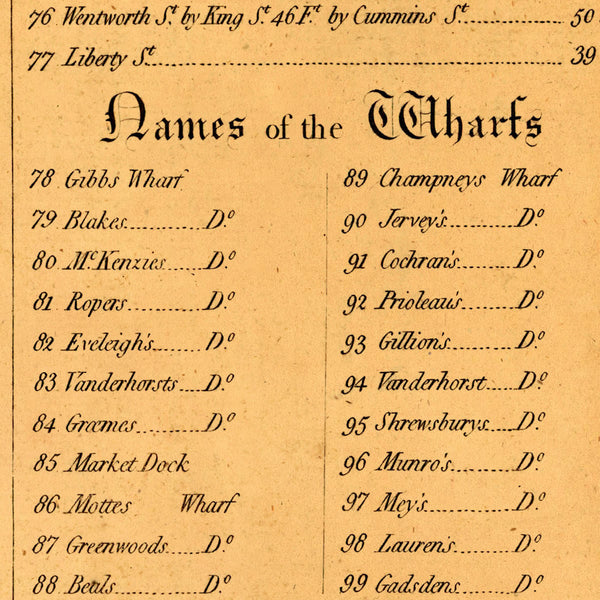 76 Wentworth St. by King St. 46 Ft. by Cummins St. 50
77 Liberty St. 39
Names of the Wharfs
78 Gibbs Wharf
79 Blakes Do.
80 McKenzies Do.
81 Ropers Do.
82 Eveleigh's Do.
83 Vanderhorsts Do.
84 Græmes Do.
85 Market Dock
86 Mottes Wharf
87 Greenwoods Do.
88 Beals Do.
89 Champneys Wharf
90 Jervey's Do.
91 Cochran's Do.
92 Prioleau's Do.
93 Gillion's Do.
94 Vanderhorst Do.
95 Shrewsburys Do.
96 Munro's Do.
97 Mey's Do.
98 Lauren's Do.
99 Gadsdens Do.